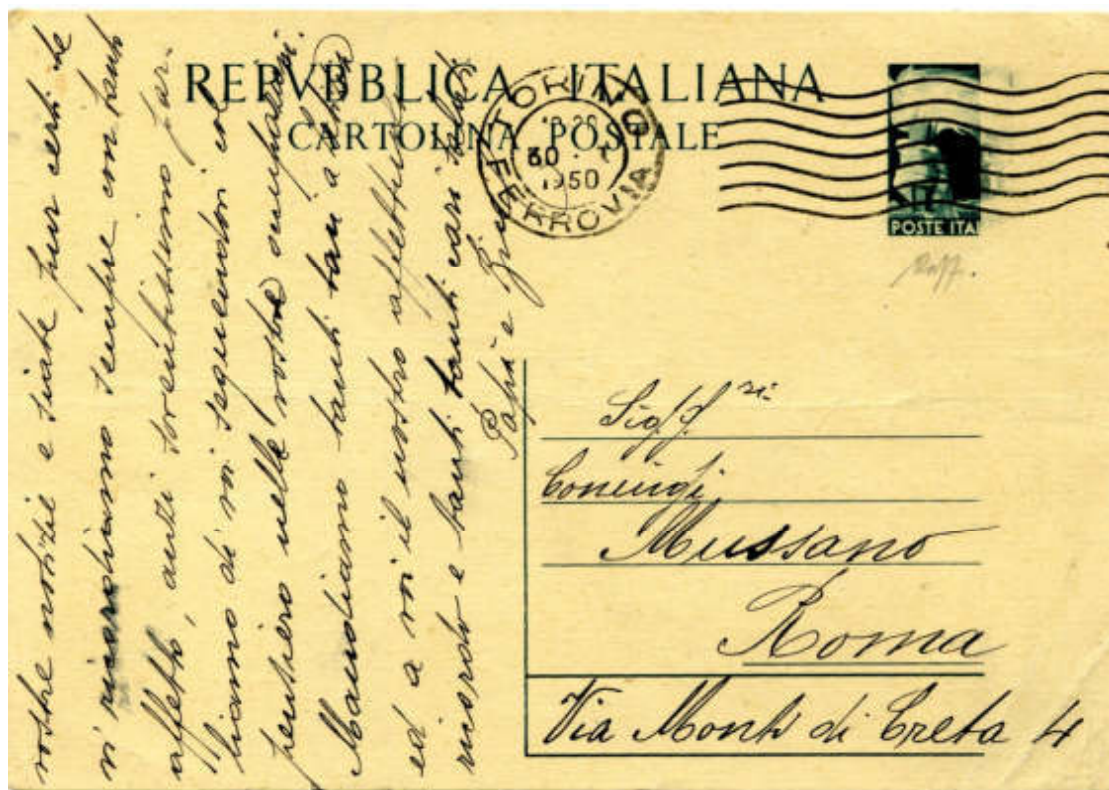 REPVBBLICA ITALIANA
CARTOLINA POSTALE
TORINO
FERROVIA
30
1950
POSTE ITA
Sigg.ri
Coniugi
Mussano
Roma
Via Monti di Creta 4
vostre notizie e siate pur certi che
vi ricordiamo sempre con tanto
affetto, anzi soventissimo par-
liamo di voi seguendovi col
pensiero nelle vostre
Mandiamo tanti tanti a
ed a voi il nostro affettuoso
ricordo e tanti tanti cari saluti
Papà e